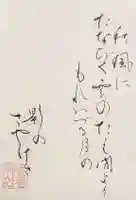 秋風に
たなびく雲のたえ間より
もれいづる月の
影の
さやけさ